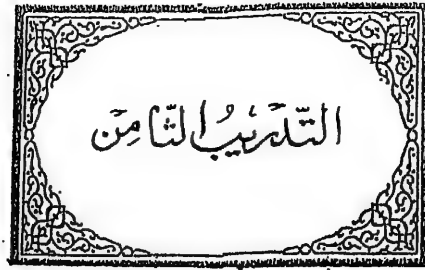 التَّدْرِيْبُ الثَّامِن